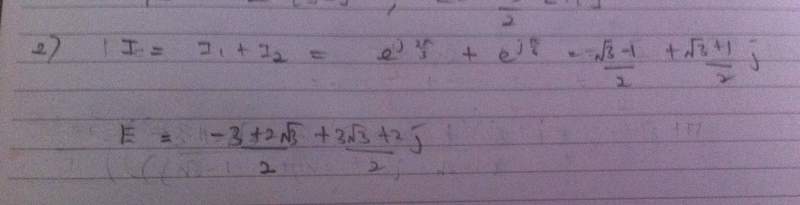 2) I = I₁ + I₂ = e^(j 2π/3) + e^(j π/6) = (√3 -1)/2 + (√3 +1)/2 j
E = (-3 + 2√3)/2 + (3√3 + 2)/2 j